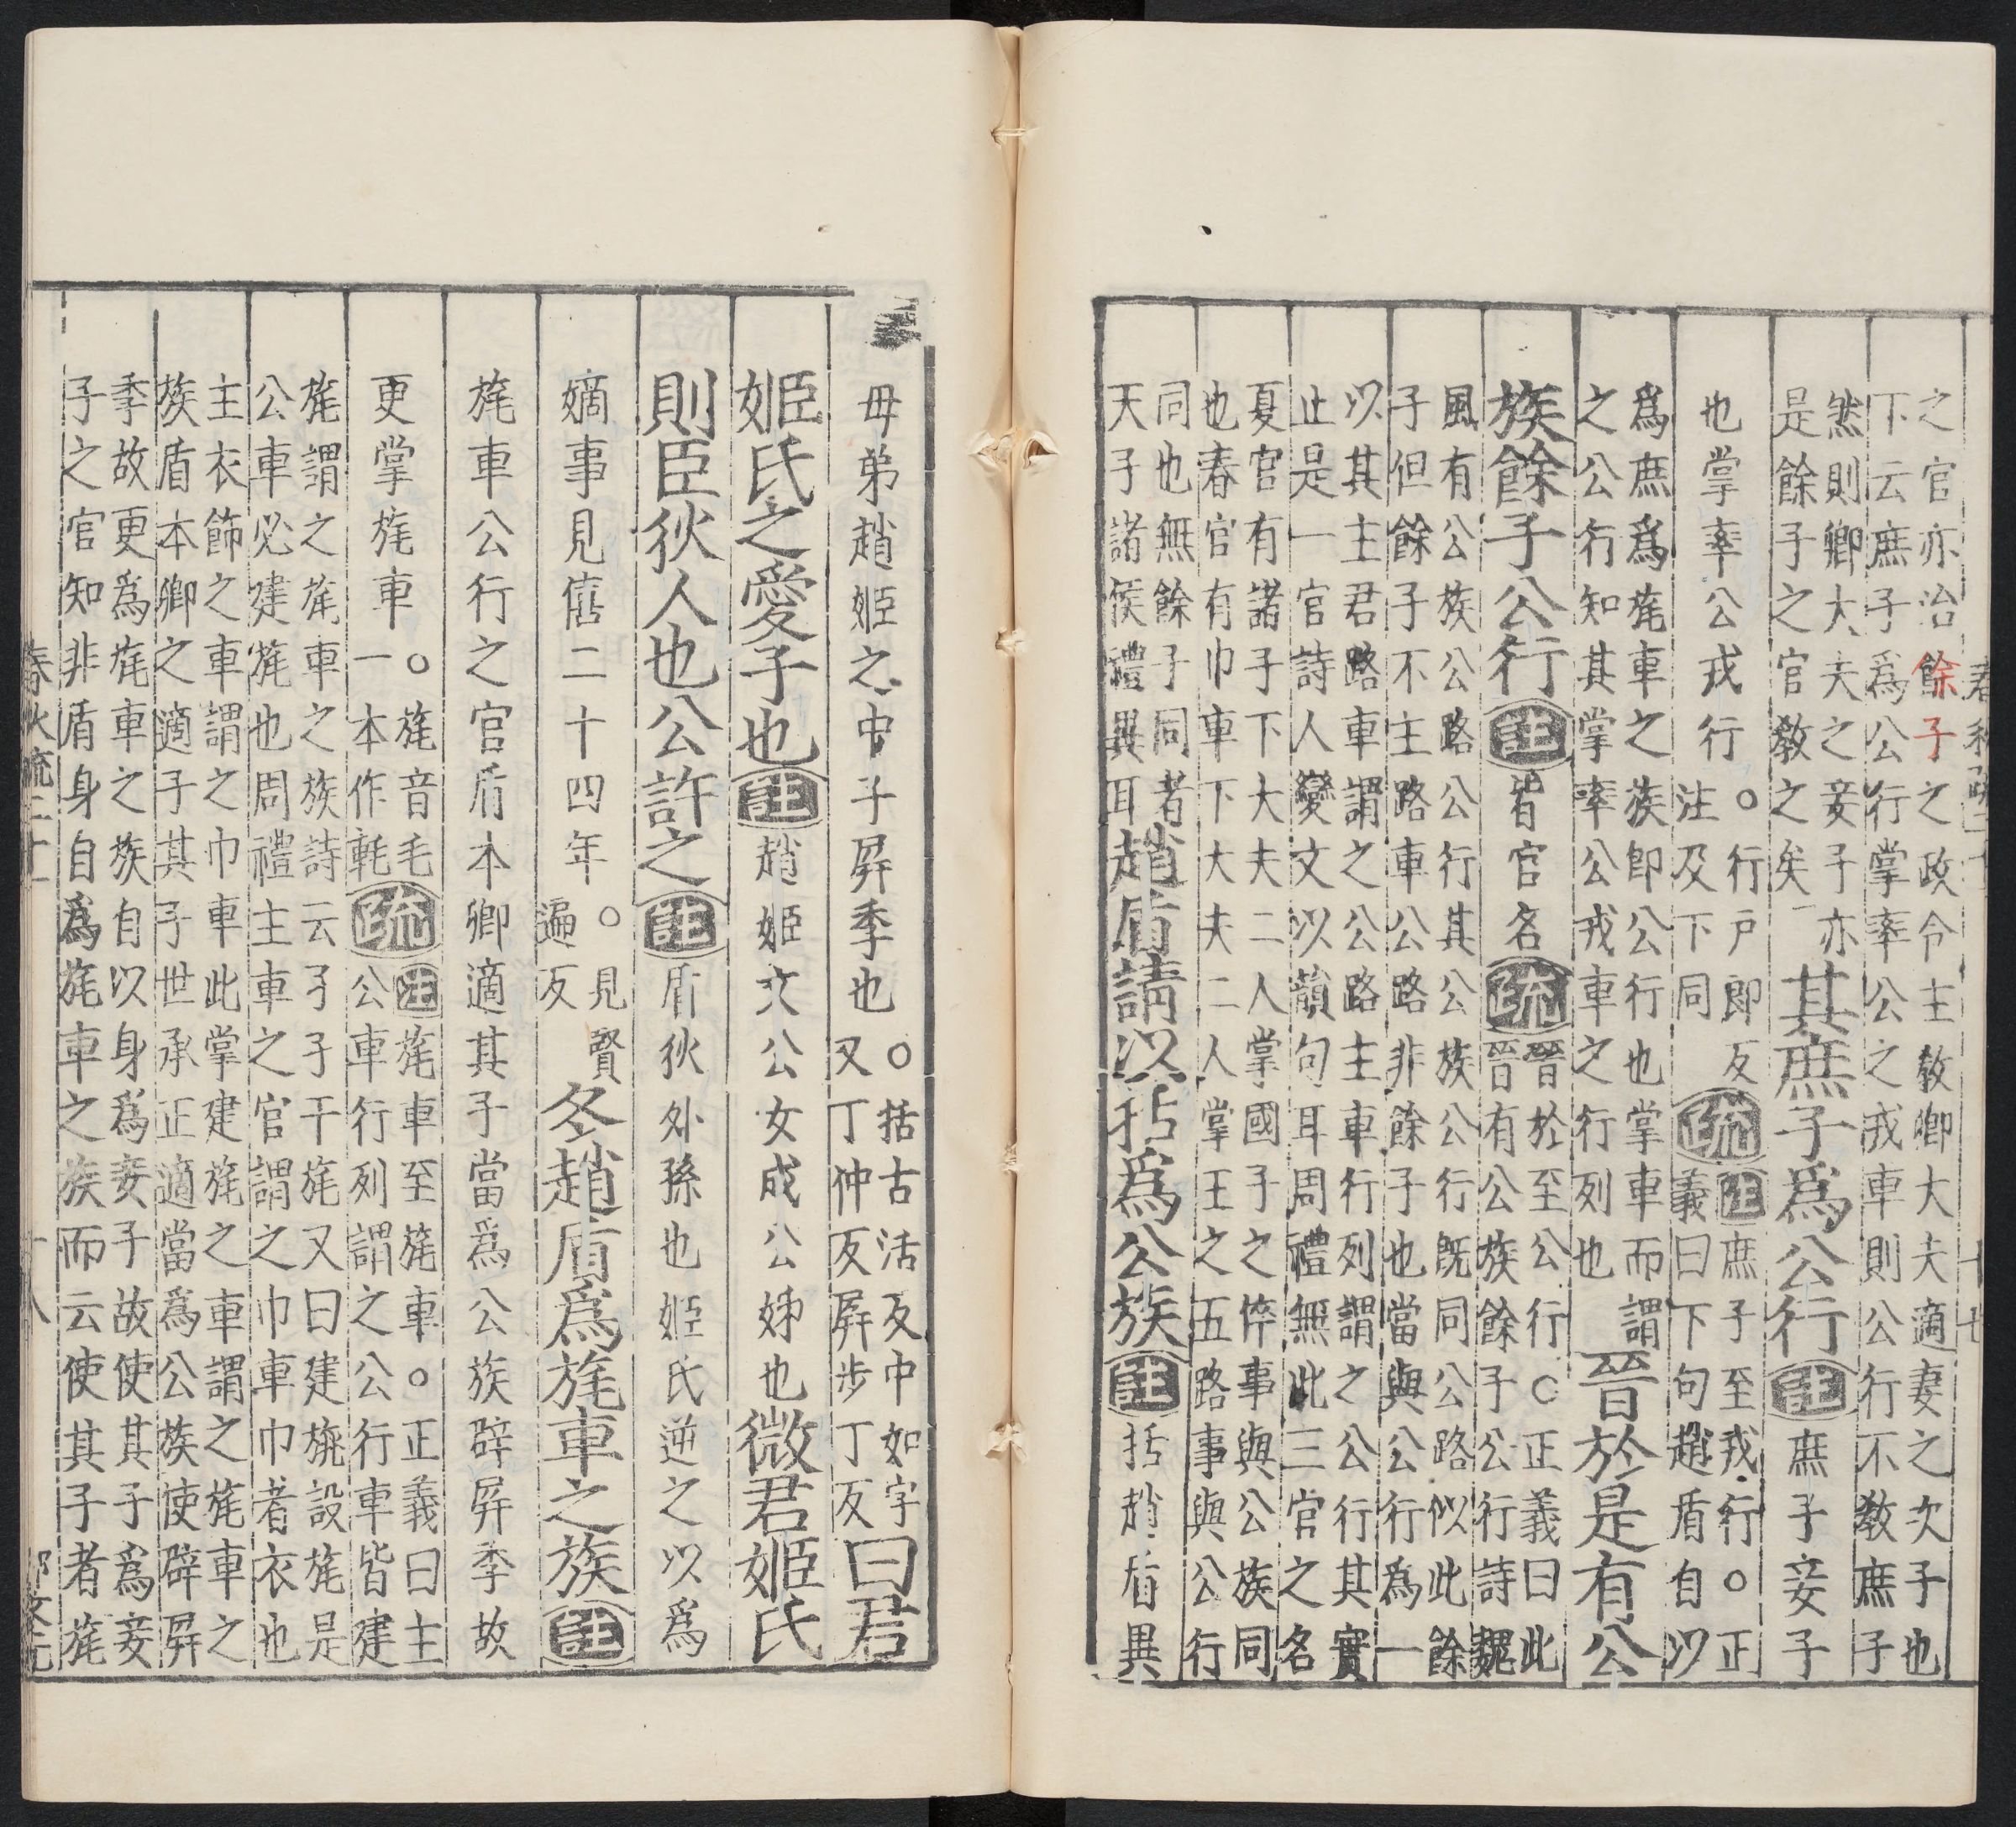 之官亦治餘子之政令主教卿大夫適妻之次子也
下云庶子爲公行掌率公之戎車則公行不教庶子
然則卿大夫之妾子亦
是餘子之官教之矣
其庶子爲公行註庶子妾子
也掌率公戎行
○行户郎反
注及下同
疏
注庶子至戎行○正
義曰下句趙盾自以
爲庶爲旄車之族即公行也掌車而謂
之公行知其掌率公戎車之行列也
晉於是有公
族餘子公行註皆官名疏
晉於至公行○正義曰此
晉有公族餘子公行詩魏
風有公族公路公行其公族公行既同公路似此餘
子但餘子不主路車公路非餘子也當與公行爲一
以其主君路車謂之公路主車行列謂之公行其實
止是一官詩人變文以韻句耳周禮無此三官之名
夏官有諸子下大夫二人掌國子之倅事與公族同
也春官有巾車下大夫二人掌王之五路事與公行
同也無餘子同者
天子諸侯禮異耳
趙盾請以括爲公族註括趙盾異
母弟趙姬之中子屏季也
○括古活反中如字
又丁仲反屏步丁反
曰君
姬氏之愛子也註趙姬文公女成公姊也微君姬氏
則臣狄人也公許之註盾狄外孫也姬氏逆之以爲
嫡事見僖二十四年
○見賢
遍反
冬趙盾爲旄車之族註
旄車公行之官盾本卿適其子當爲公族辟屏季故
更掌旄車
○旄音毛
一本作軞
疏
注旄車至旄車○正義曰主
公車行列謂之公行車皆建
旄謂之旄車之族詩云孑孑干旄又曰建旐設旄是
公車必建旄也周禮主車之官謂之巾車巾者衣也
主衣飾之車謂之巾車此掌建旄之車謂之旄車之
族盾本卿之適子其子世承正適當爲公族使辟屏
季故更爲旄車之族自以身爲妾子故使其子爲妾
子之官知非盾身自爲旄車之族而云使其子者旄
春秋疏二十一
十八